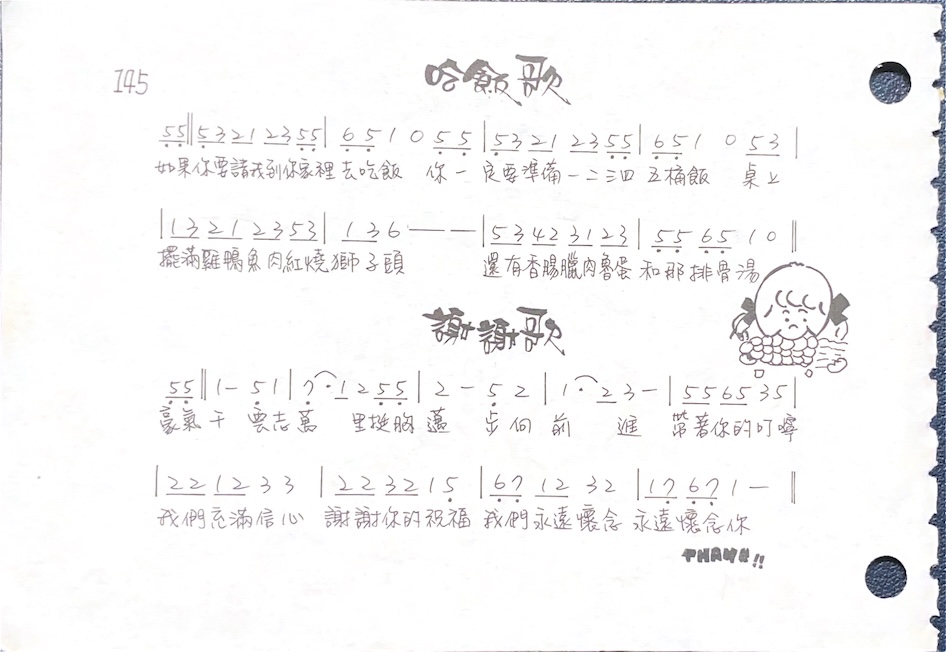 145
哈飯歌
55‖5321 2355|6510 55|5321 2355|651 0 53|
如果你要請我到你家裡去吃飯 你一定要準備一二三四五桶飯 桌上
|1321 2353|136———|5342 3123|556510‖
擺滿雞鴨魚肉紅燒獅子頭 還有香腸臘肉魯蛋和那排骨湯
謝謝歌
55‖1-51|7·1255|2-52|1·23-|556535|
豪氣干雲志萬里挺胸邁步向前進 帶著你的叮嚀
|221233|223215|671232|17671-‖
我們充滿信心 謝謝你的祝福 我們永遠懷念 永遠懷念你
THANK!!